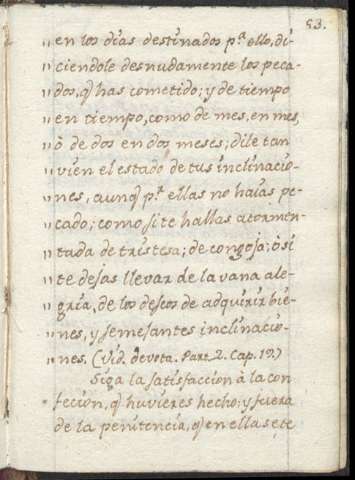 53.
„ en los dias destinados p.ª ello, di
„ ciendole desnudamente los peca-
„ dos, q̃ has cometido; y de tiempo
„ en tiempo, como de mes, en mes,
„ ò de dos en dos meses; dile tan
„ vien el estado de tus inclinacio-
„ nes, aunq̃ p.ª ellas no haias pe-
„ cado; como si te hallas atormen-
„ tada de tristesa; de congoja; ò si
„ te dejas llevar de la vana ale-
„ gria, de los deseos de adquirir bie-
„ nes, y semejantes inclinacio-
„ nes. (Vid. devota. Part. 2. Cap. 19.)
Siga la satisfaccion à la con
feción, q̃ huvieres hecho: y fuera
de la penitencia, q̃ en ella se te